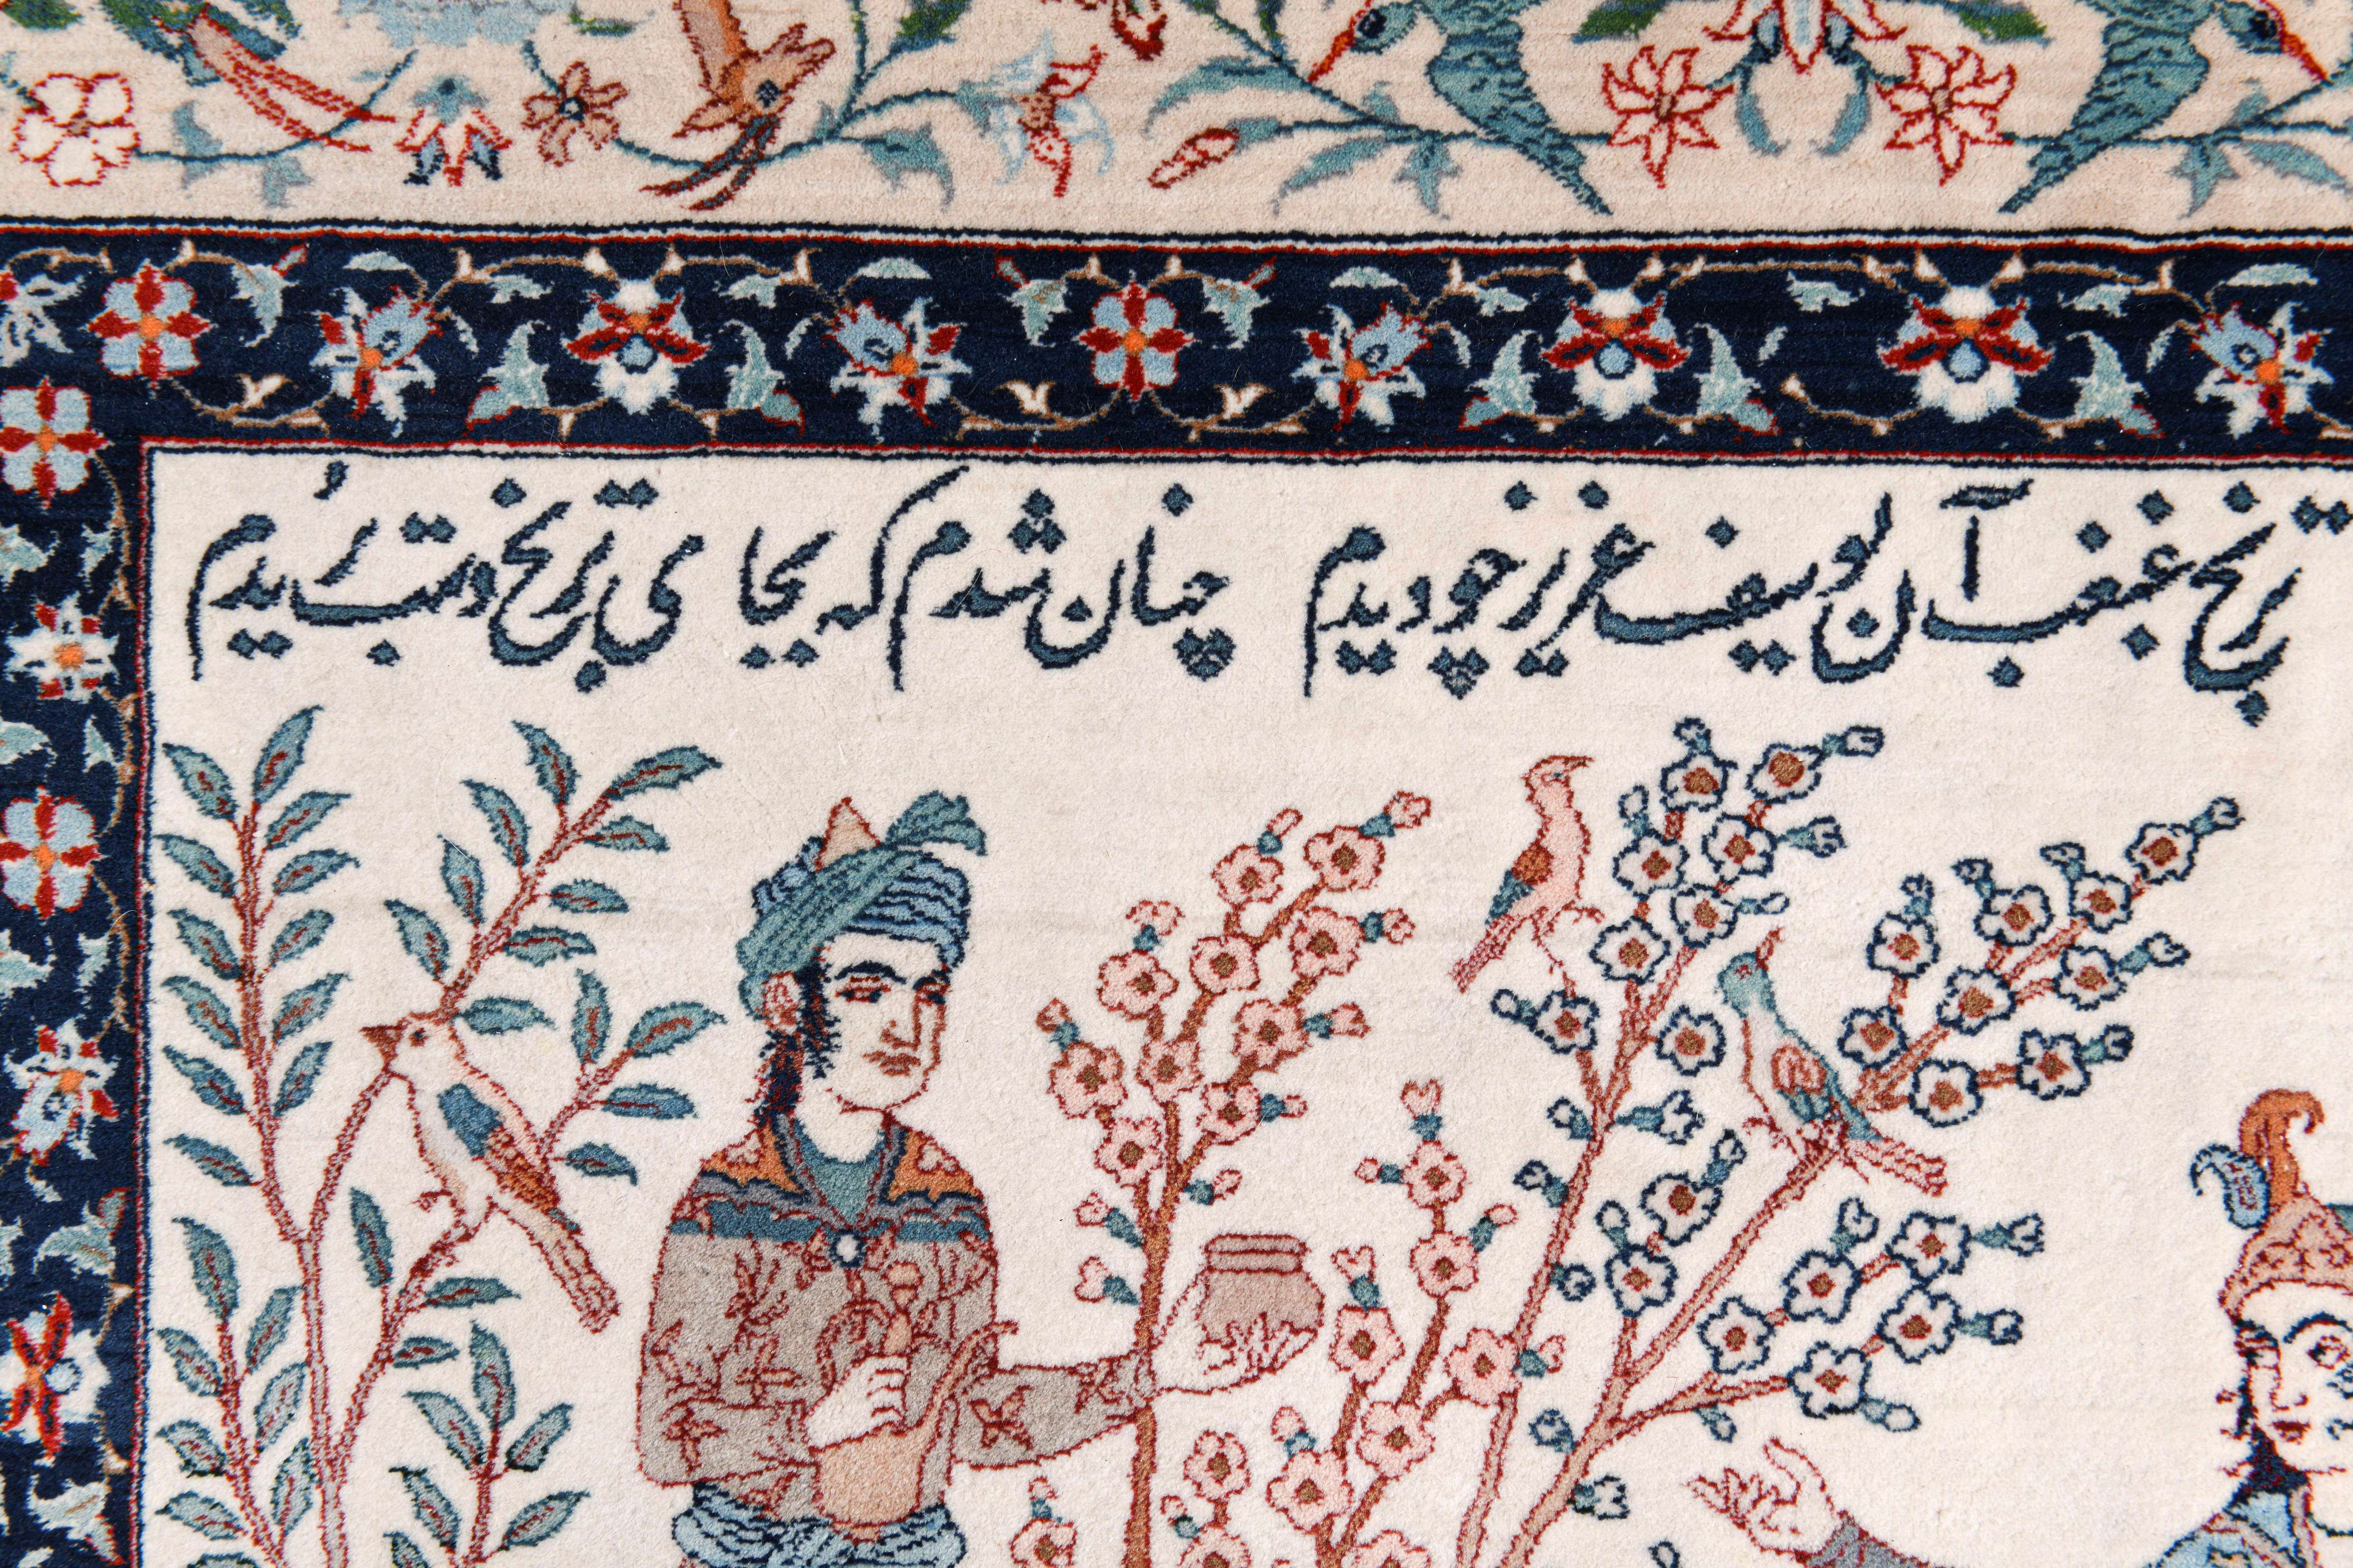 ترنج غبغب آن یوسف عزیز چو دیدم چنان شدم که بجا ی ترنج دست بُریدم